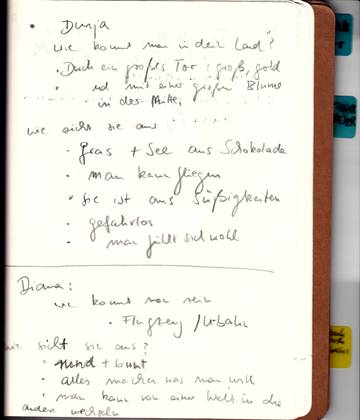 • Dunja
wie kommt man in dein Land?
• Durch ein großes Tor: groß, gold
• und mit einer großen Blume
in der Mitte.
wie sieht sie aus
• Gras + See aus Schokolade
• man kann fliegen
• sie ist aus Süßigkeiten
• gefahrlos
• man fühlt sich wohl
Diana:
wie kommt man rein
• Flugzeug / U-bahn
wie sieht sie aus?
• rund + bunt
• alles machen was man will
• man kann von einer Welt in die
andere wechseln